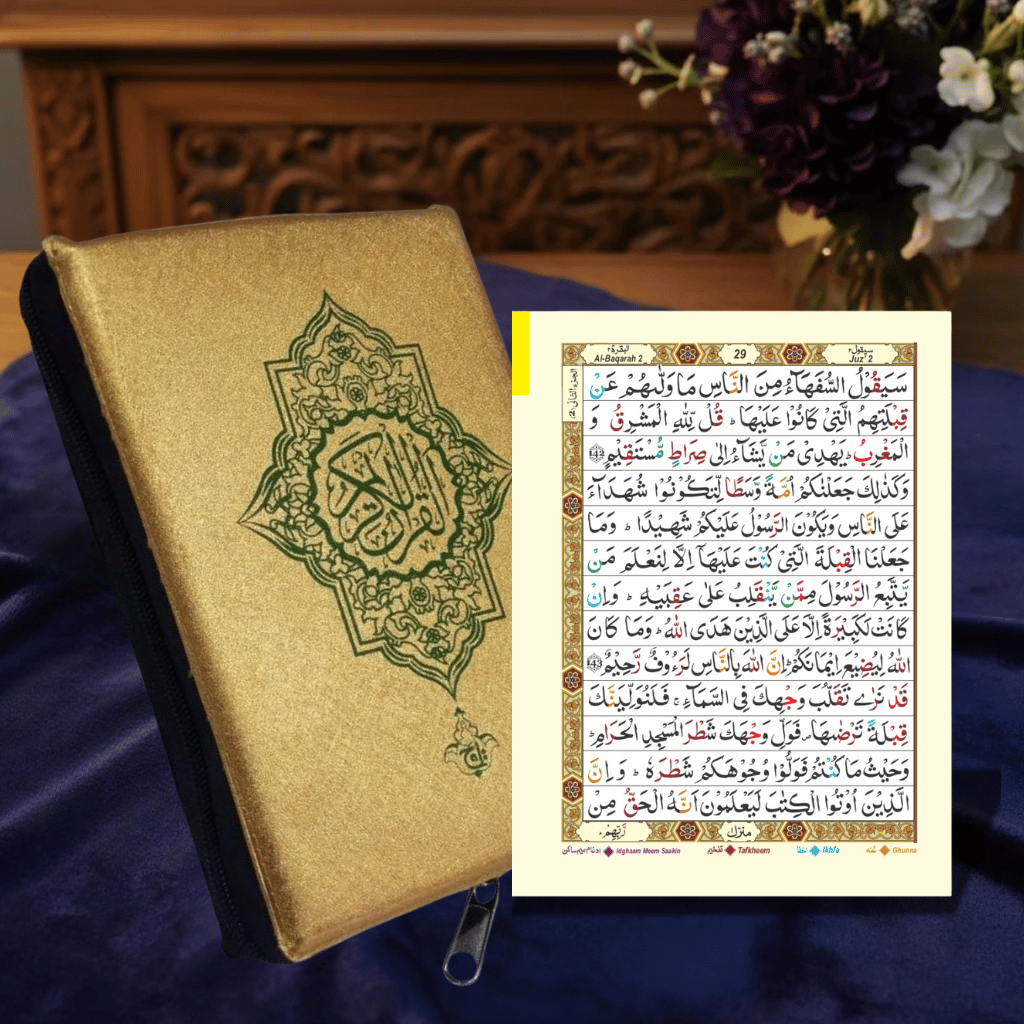 القرآن الكريم
البقرة ٢
Al-Baqarah 2
29
سیقول ٢
Juz' 2
الجزء الثانی (2)
سَيَقُوْلُ السُّفَهَآءُ مِنَ النَّاسِ مَا وَلّٰىهُمْ عَنْ
قِبْلَتِهِمُ الَّتِىْ كَانُوْا عَلَيْهَا ؕ قُلْ لِّلّٰهِ الْمَشْرِقُ وَ
الْمَغْرِبُ ؕ يَهْدِىْ مَنْ يَّشَآءُ اِلٰى صِرَاطٍ مُّسْتَقِيْمٍ 142
وَكَذٰلِكَ جَعَلْنٰكُمْ اُمَّةً وَّسَطًا لِّتَكُوْنُوْا شُهَدَآءَ
عَلَى النَّاسِ وَيَكُوْنَ الرَّسُوْلُ عَلَيْكُمْ شَهِيْدًا ؕ وَمَا
جَعَلْنَا الْقِبْلَةَ الَّتِىْ كُنْتَ عَلَيْهَآ اِلَّا لِنَعْلَمَ مَنْ
يَّتَّبِعُ الرَّسُوْلَ مِمَّنْ يَّنْقَلِبُ عَلٰى عَقِبَيْهِ ؕ وَاِنْ
كَانَتْ لَكَبِيْرَةً اِلَّا عَلَى الَّذِيْنَ هَدَى اللّٰهُ ؕ وَمَا كَانَ
اللّٰهُ لِيُضِيْعَ اِيْمَانَكُمْ ؕ اِنَّ اللّٰهَ بِالنَّاسِ لَرَءُوْفٌ رَّحِيْمٌ 143
قَدْ نَرٰى تَقَلُّبَ وَجْهِكَ فِى السَّمَآءِ ۚ فَلَنُوَلِّيَنَّكَ
قِبْلَةً تَرْضٰىهَا ۪ فَوَلِّ وَجْهَكَ شَطْرَ الْمَسْجِدِ الْحَرَامِ ؕ
وَحَيْثُ مَا كُنْتُمْ فَوَلُّوْا وُجُوْهَكُمْ شَطْرَهٗ ؕ وَاِنَّ
الَّذِيْنَ اُوْتُوا الْكِتٰبَ لَيَعْلَمُوْنَ اَنَّهُ الْحَقُّ مِنْ
رَّبِّهِمْ
منزل
ادغام میم ساکن Idghaam Meem Saakin تفخیم Tafkheem اخفا Ikhfa غنّه Ghunna